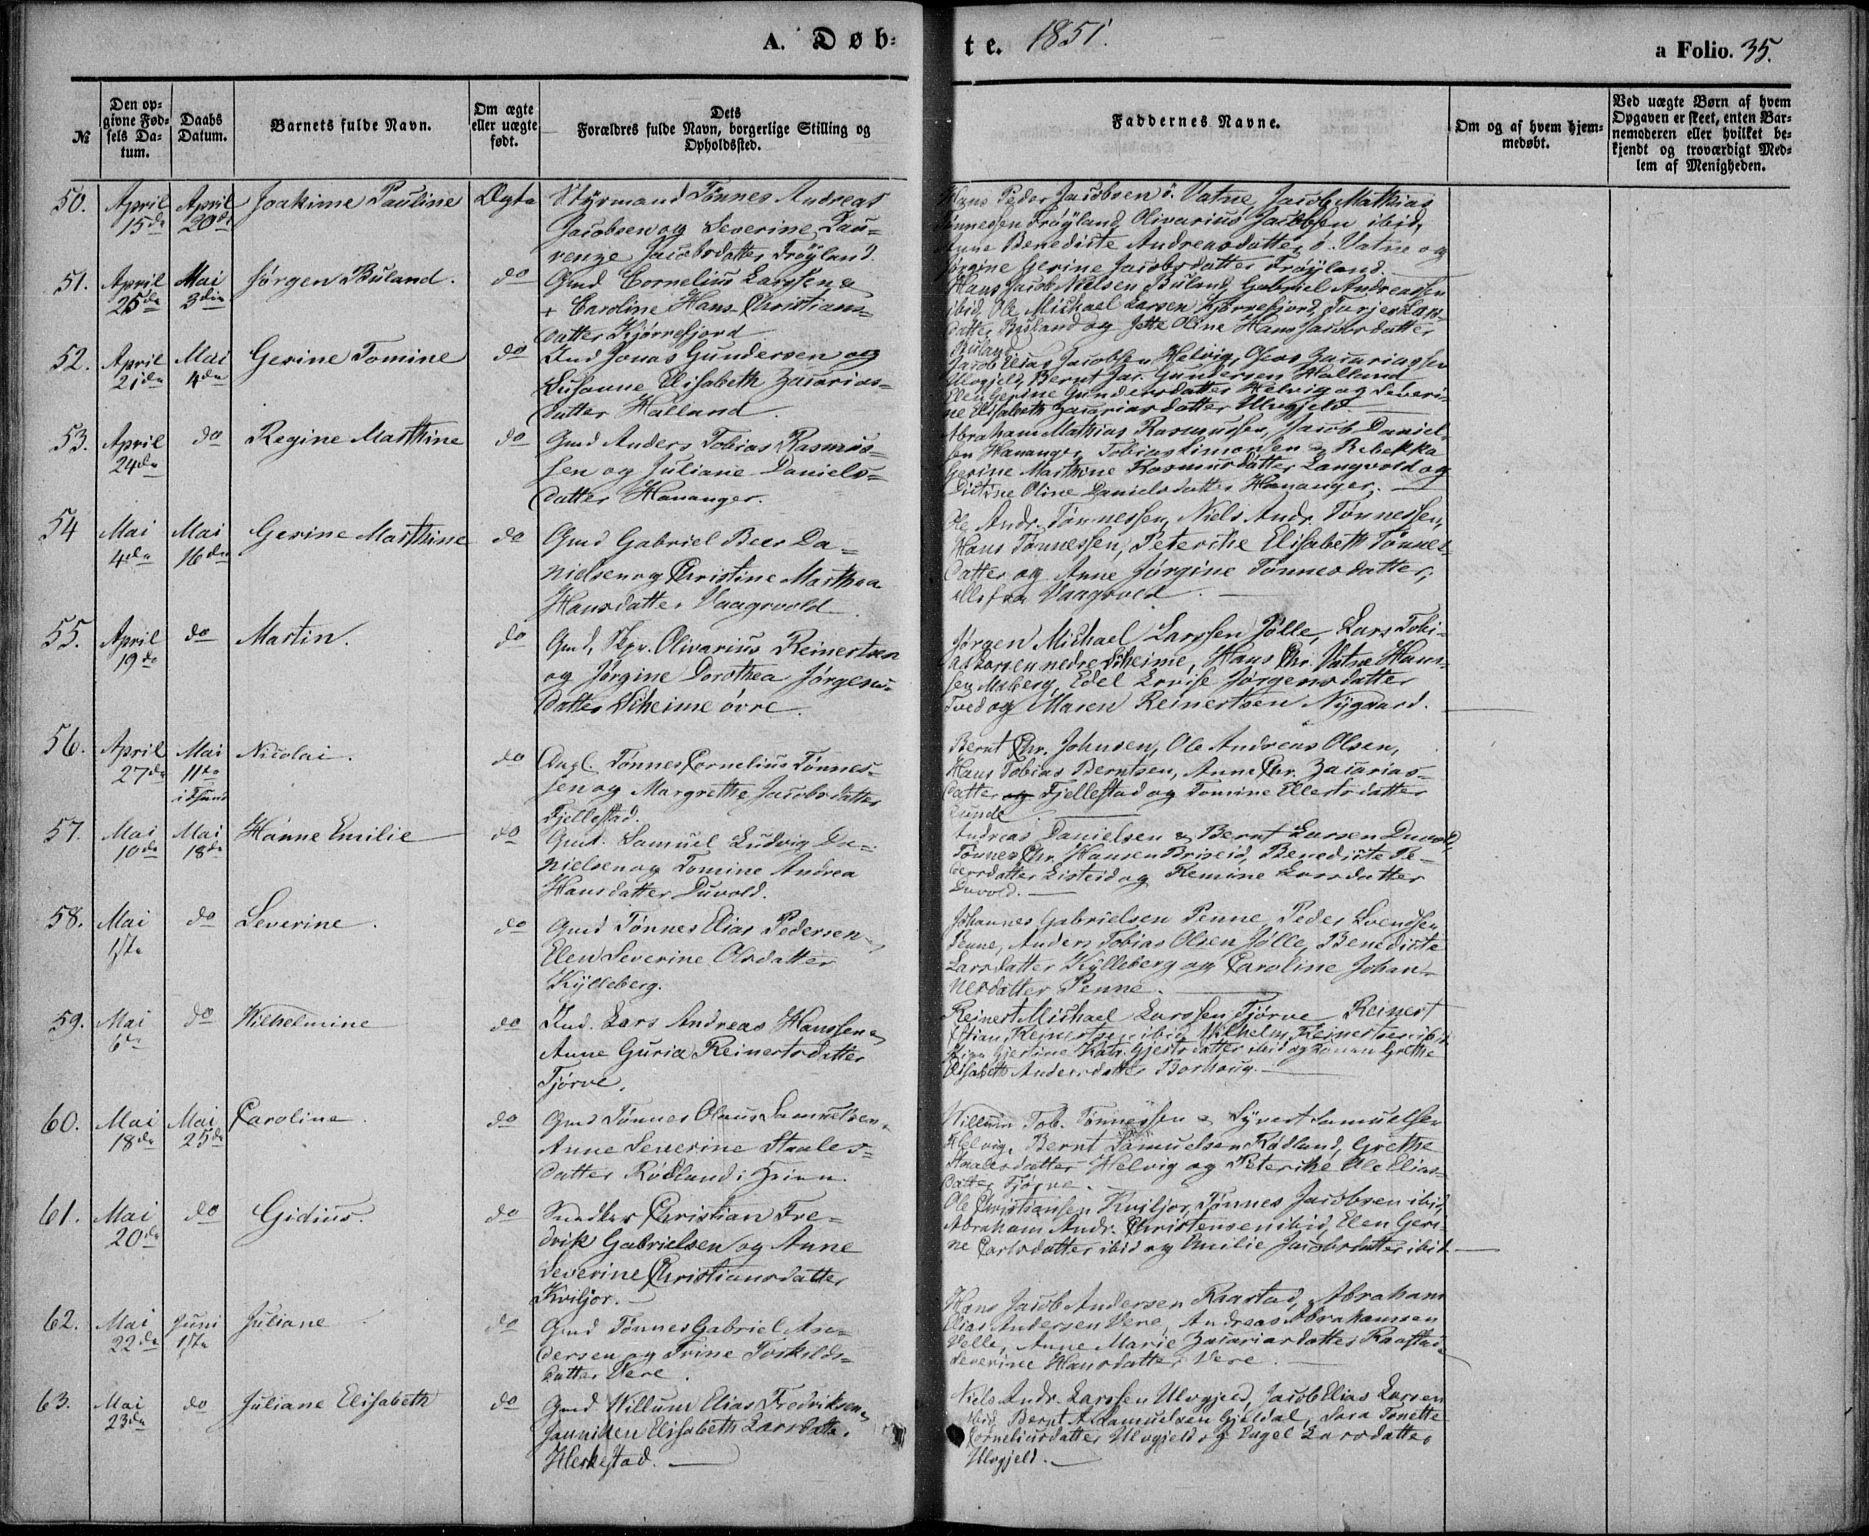 A. Døb-
te. 1851.
a Folio. 35.
№
Den op-
givne Fød-
sels Da-
tum.
Daabs
Datum.
Barnets fulde Navn.
Om ægte
eller uægte
født.
Dets
Forældres fulde Navn, borgerlige Stilling og
Opholdssted.
Faddernes Navne.
Om og af hvem hjem-
medøbt.
Ved uægte Børn af hvem
Opgaven er skeet, enten Bar-
nemoderen eller hvilket be-
kjendt og troværdigt Med-
lem af Menigheden.
50. April 15de April 20de Joakime Pauline Ægte
Styrmand Tønnes Andreas
Jacobsen og Severine Lau-
renze Jacobsdatter Frøyland.
Hans Peder Jacobsen ö. Vatne, Jacob Mathias
Tønnesen Frøyland, Olivarius Jacobsen ibid,
Anne Benedicte Andreasdatter ö. Vatne og
Jørgine Gerine Jacobsdatter Frøyland.
51. April 25de Mai 3die Jørgen Buland. do
Gmd Cornelius Larssen &
+ Caroline Hans Christians-
datter Kjørrefjord
Hans Jacob Nielsen Buland, Gabriel Andreassen
ibid, Ole Michael Larsen Kjørrefjord, Terjer Lars-
datter Buland og Jette Oline Hans Jacobsdatter
Buland
52. April 21de Mai 4de Gerine Tomine do
Ind Jonas Gundersen og
Susanne Elisabeth Zacarias-
datter Halland.
Jacob Elias Jacobsen Helvig, Osas Zacariassen
Ulvgjeld, Bernt Jac. Gundersen Halland
Elen Gerine Gundersdatter Helvig og Severi-
ne Elisabeth Zacariasdatter Ulvgjeld.
53. April 24de do Regine Marthine do
Gmd Anders Tobias Rasmus-
sen og Juliane Daniels-
datter Hananger.
Abraham Mathias Rasmussen, Jacob Daniel-
sen Hananger, Tobias Simonsen & Rebekka
Gerine Marthine Rasmusdatter Langvold og
Oline Danielsdatter Hananger.
54 Mai 4de Mai 16de Gerine Marthine do
Gmd Gabriel Beer Da-
nielsen og Christine Marthea
Hansdatter Vaagsvold.
Ole Andr. Tønnessen, Niels Andr. Tønnessen,
Hans Tønnessen, Peterike Elisabeth Tønnes-
datter og Anne Jørgine Tønnesdatter,
alle fra Vaagsvold.
55. April 19de do Martin. do
Gmd, Skpr. Olivarius Reinertsen
og Jørgine Dorothea Jørgens-
datter Skeime övre.
Jørgen Michael Larssen Jølle, Lars Tobi-
as Larsen nedre Skeime, Hans Chr. Vatne Hans-
sen Maberg, Edel Lovise Jørgensdatter
Tved og Maren Reinertsen Nygaard.
56. April 27de Mai 11te i dSund Nicolai. do
Ungl. Tønnes Cornelius Tønnes-
sen og Margrethe Jacobsdatter
Fjellestad.
Bernt Chr. Johnsen, Ole Andreas Olsen,
Hans Tobias Berntsen, Anne Chr. Zacarias-
datter og Fjellestad og Tomine Ellertsdatter
Lunde
57. Mai 10de Mai 18de Hanne Emilie do
Gmd. Samuel Ludvig Da-
nielsen og Tomine Andrea
Hansdatter Duvold.
Andreas Danielsen & Bernt Larsen Duvold,
Tønnes Chr. Hansen Briseid, Benedicte Pe-
dersdatter Listeid og Remine Larsdatter
Duvold.
58. Mai 1ste do Severine. do
Gmd Tønnes Elias Pedersen &
Elen Severine Olsdatter
Kylleberg.
Johannes Gabrielsen Penne, Peder Svendsen
Penne, Anders Tobias Olsen Jølle, Benedicte
Larsdatter Kylleberg og Caroline Johan-
nesdatter Penne.
59. Mai 6te do Wilhelmine do
Ind. Lars Andreas Hanssen &
Anne Guria Reinertsdatter
Tjørve.
Reinert Michael Larssen Tjørve, Reinert
Stian Reinertsen ibid, Wilhelm Reinertsen ibid,
Gjertine Katr. Gjertsdatter ibid og Grethe
Elisabeth Andersdatter Borhaug.
60. Mai 18de Mai 25de Caroline. do
Gmd Tønnes Olaus Samuelsen &
Anne Severine Staales-
datter Rødland i Heien
Willum Tob. Tønnessen & Syvert Samuelsen
Helvig, Bernt Samuelsen Rødland, Grethe
Staalesdatter Helvig og Peterike Ole Elias-
datter Tjørve.
61. Mai 20de do Gidius. do
Snedker Christian Fre-
drik Gabrielsen og Anne
Severine Christiansdatter
Kviljor.
Ole Christiansen Kviljor, Tønnes Jacobsen ibid,
Abraham Andr. Christensen ibid, Elen Geri-
ne Carlsdatter ibid og Emilie Jacobsdatter ibid.
62. Mai 22de Juni 1ste Juliane do
Gmd Tønnes Gabriel An-
dersen og Trine Torkilds-
datter Vere.
Hans Jacob Andersen Raastad, Abraham
Elias Andersen Vere, Andreas Abrahamsen
Velle, Anne Marie Zacariasdatter Raastad &
Severine Hansdatter Vere.
63. Mai 23de do Juliane Elisabeth do
Gmd Willum Elias Fredriksen &
Janniken Elisabeth Larsdatter
Herkestad.
Niels Andr. Larssen Ulvgjeld, Jacob Elias Larsen
ibid, Bernt A. Samuelsen Gjeldal, Sara Tonette
Corneliusdatter Ulvgjeld og Engel Larsdatter
Ulvgjeld.